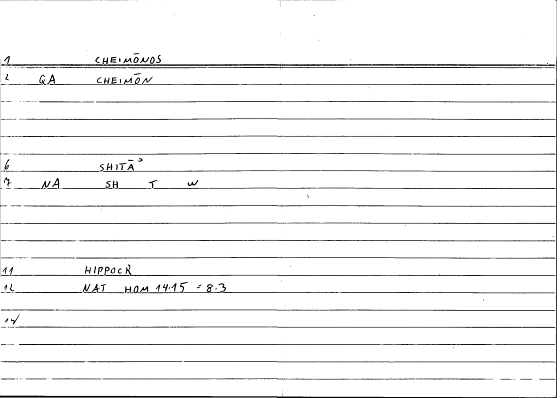 1 CHEIMŌNOS
2 QA CHEIMŌN
6 SHITĀʾ
7 NA SH T W
11 HIPPOCR
12 NAT HOM 14.15 = 8.3
14